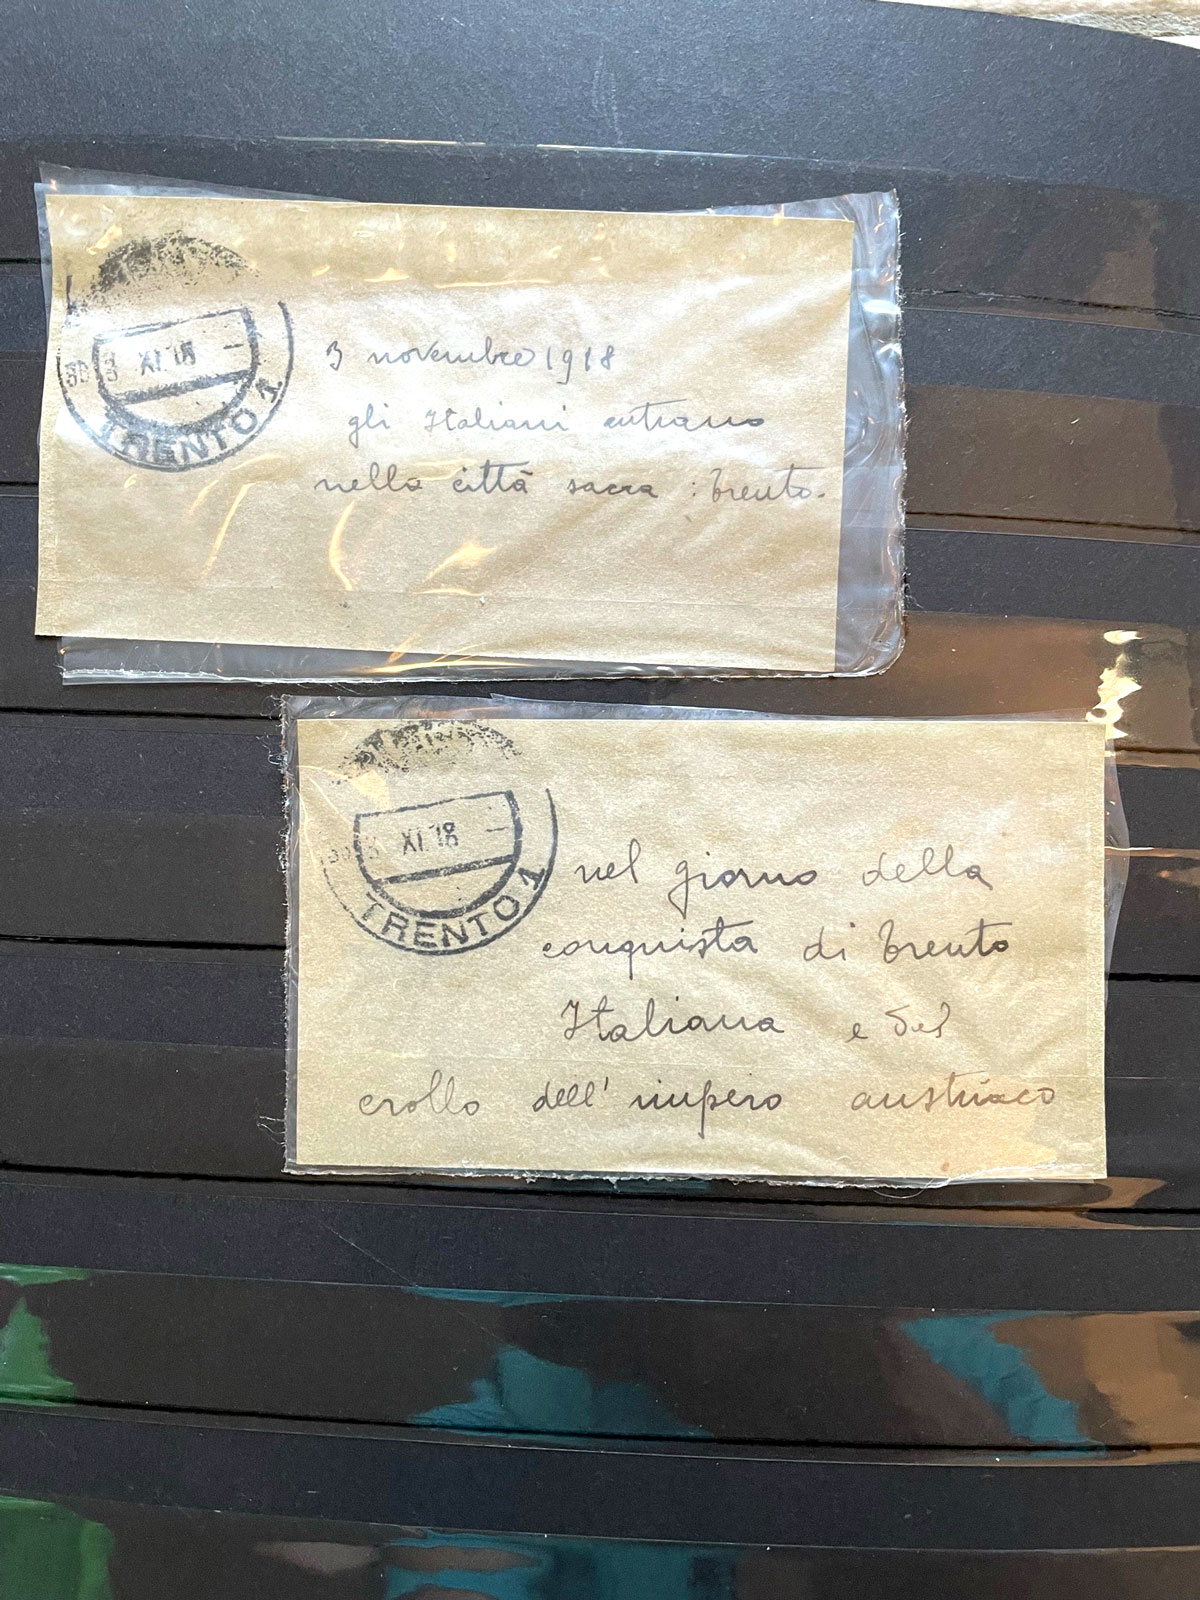 3 XI.18
TRENTO 1
3 novembre 1918
gli Italiani entrano
nella città sacra : Trento.
3 XI.18
TRENTO 1
nel giorno della
conquista di Trento
Italiana e del
crollo dell'impero austriaco